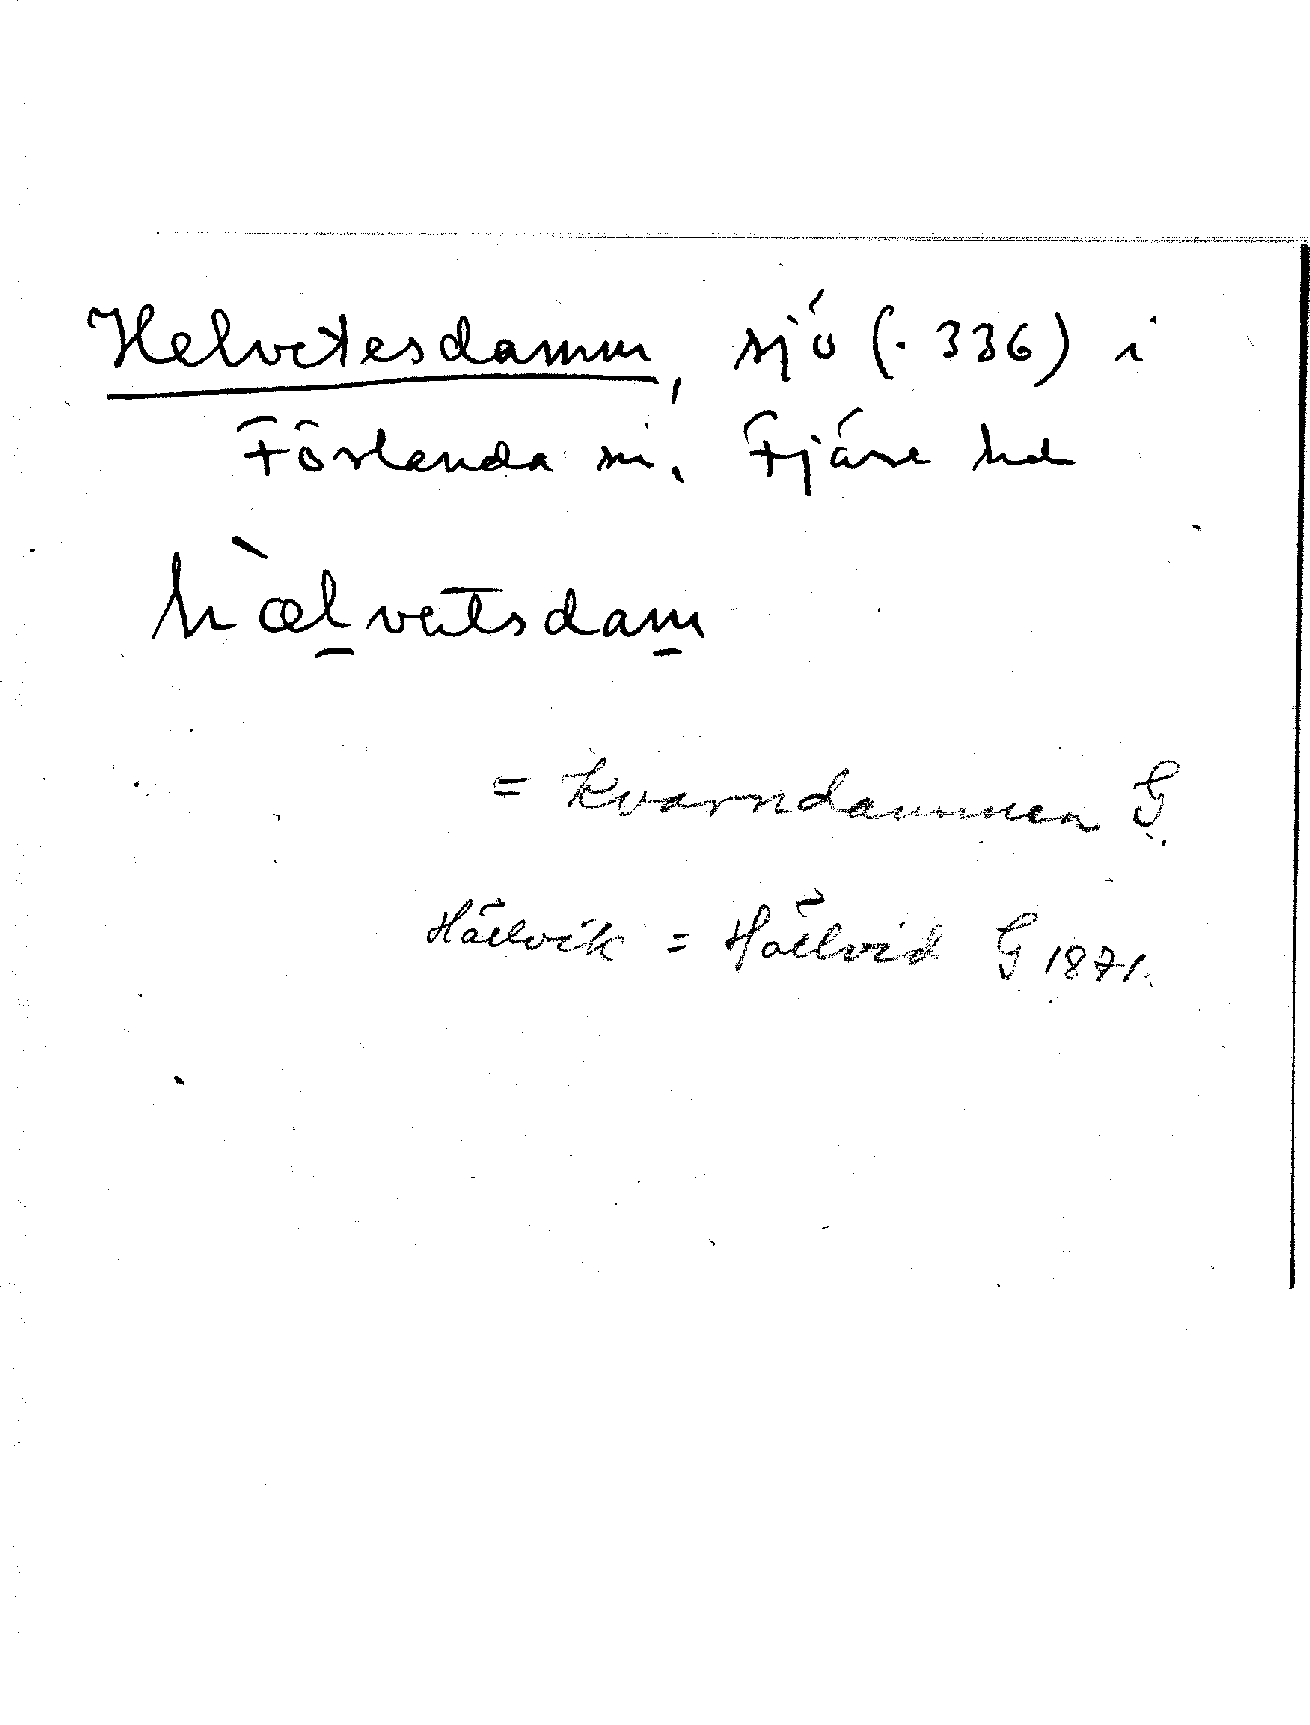 Helvetesdamm, sjö (. 336) i
Förlanda sn. Fjäre hd
hælvetsdam
= Kvarndammen G.
Hällvik = Hällvid G 1871.